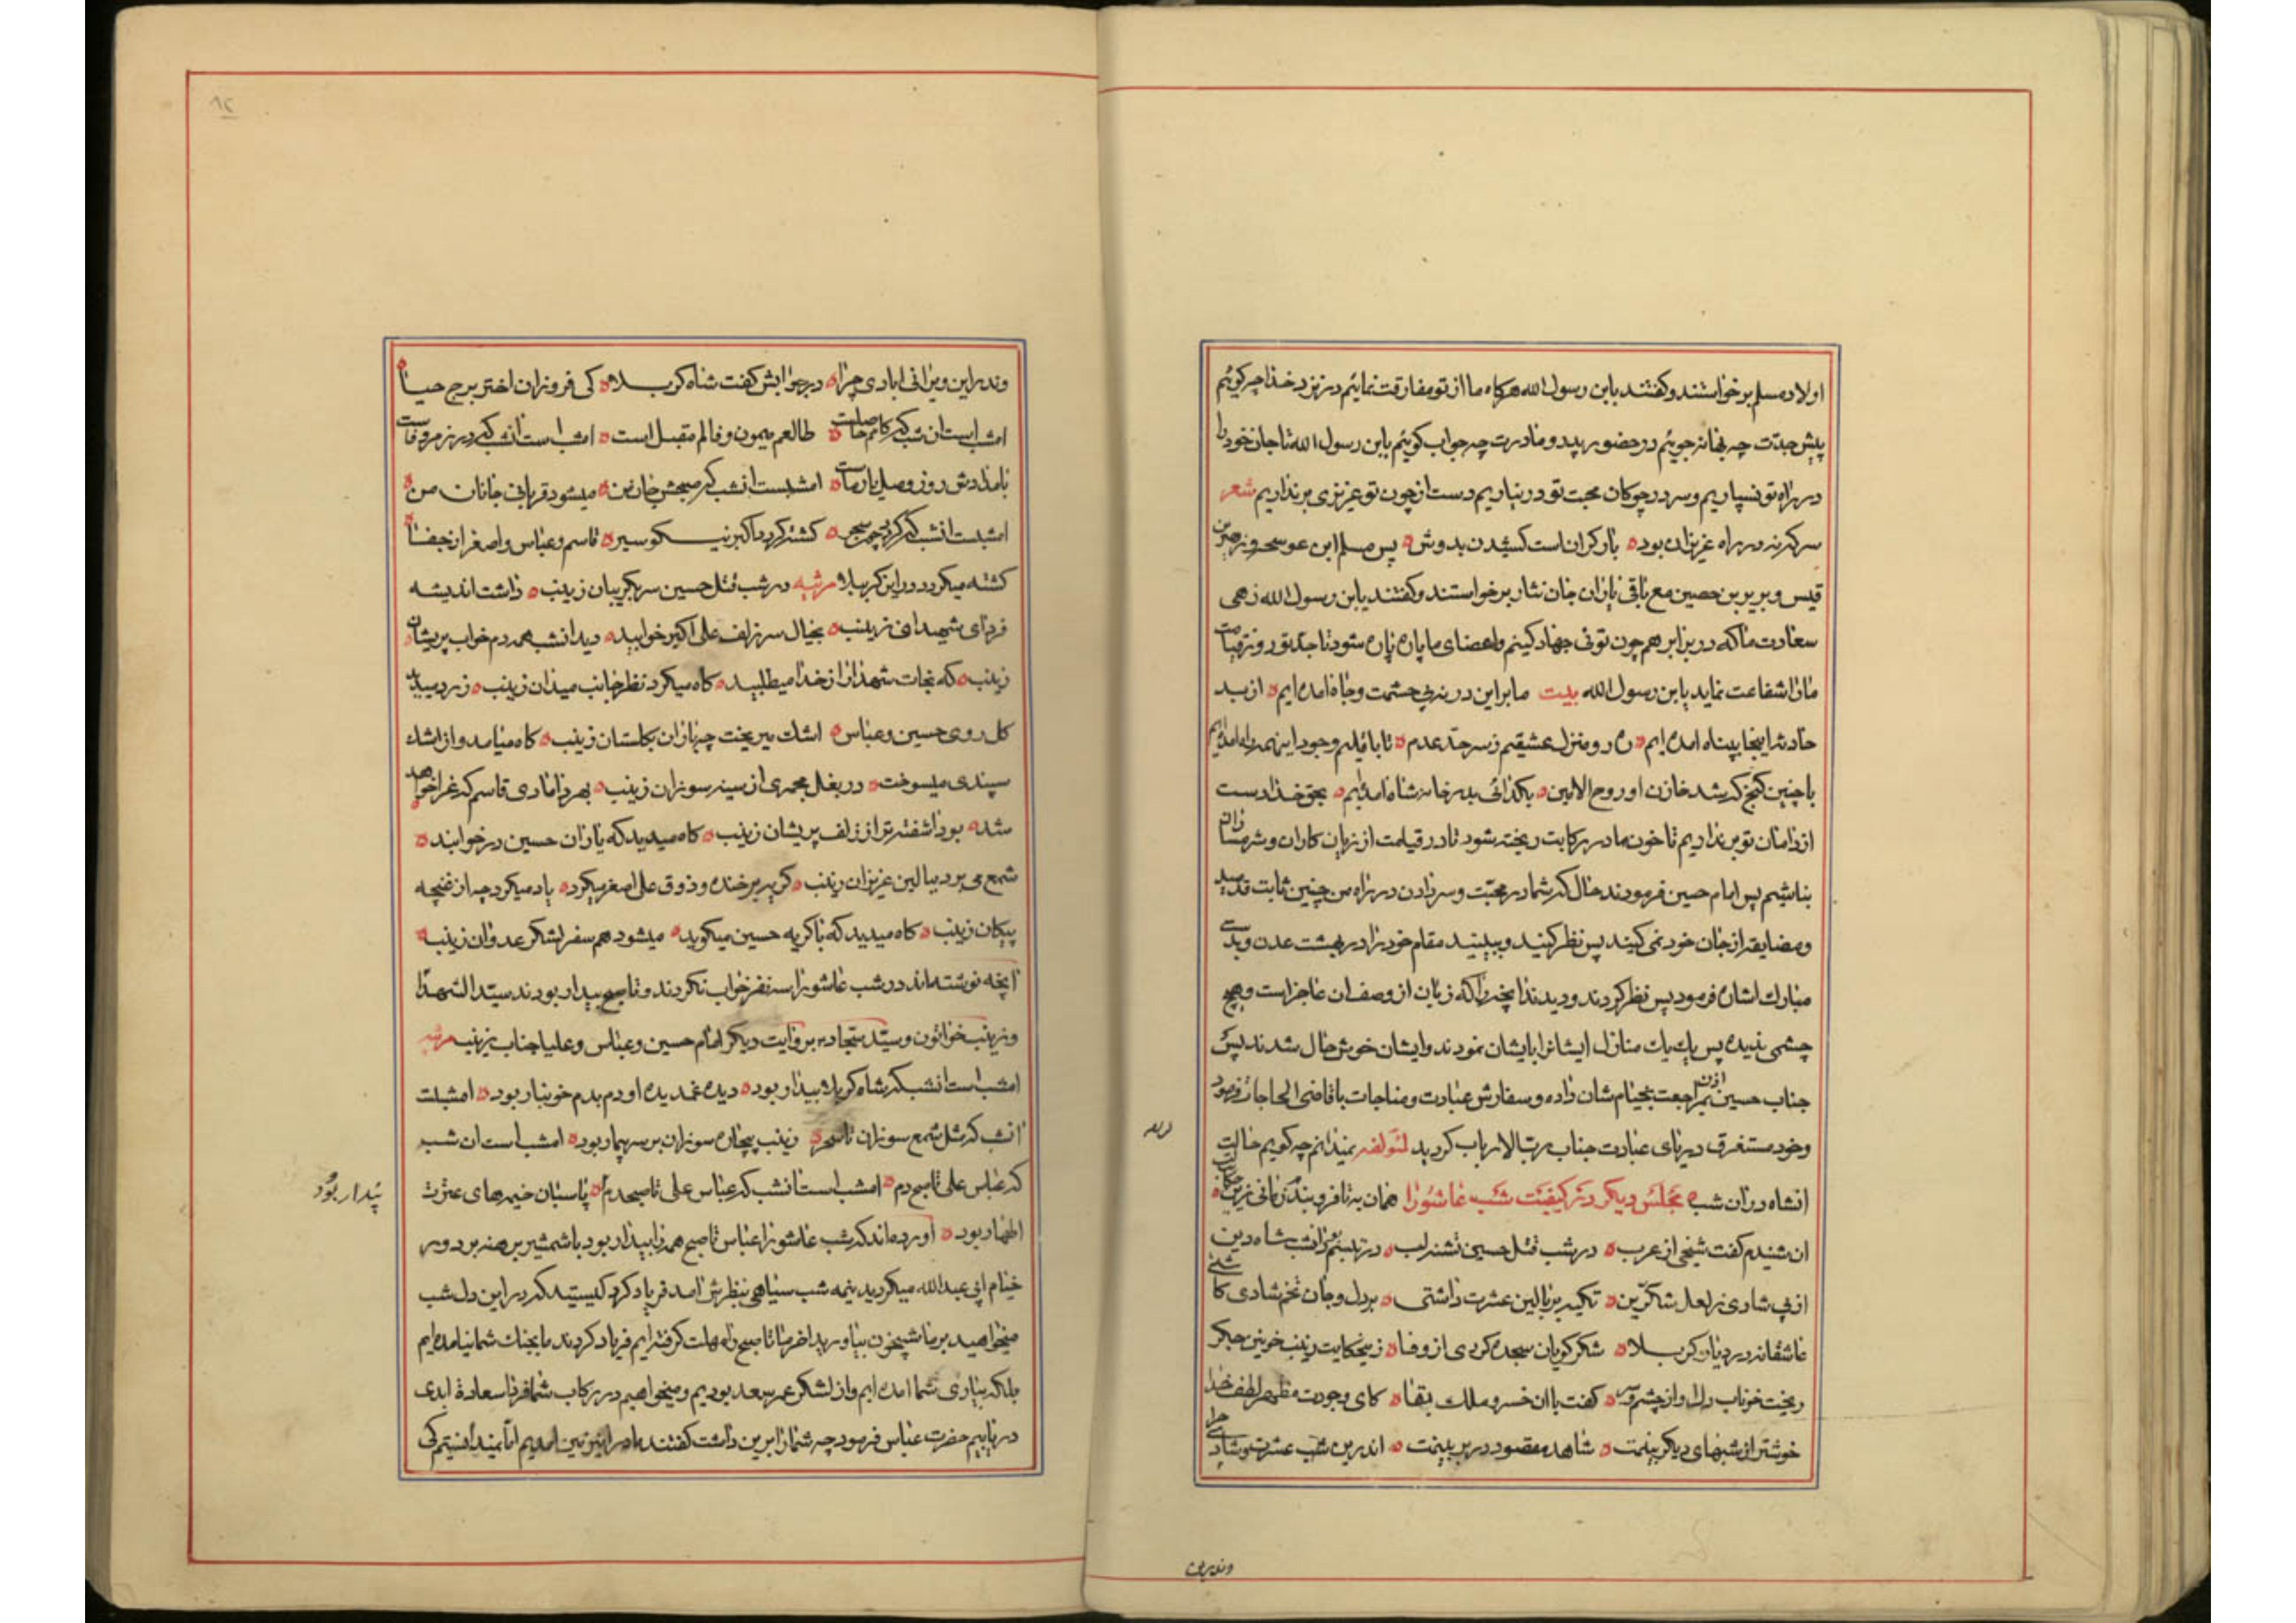 اولاد مسلم برخواستند و گفتند یابن رسول الله هرگاه ما از تو مفارقت نمائیم در نزد خدا چه گوئیم
پیش جدت چه بهانه جوئیم در حضور پدر و مادرت چه جواب گوئیم یابن رسول الله تا جان خود را
در راه تو نسپاریم و سر در چوکان محبت تو در نیاریم دست از چون تو عزیزی برنداریم شعر
سر که نه در راه عزیزان بود بار گران است کشیدن بدوش پس مسلم ابن عوسجه و
قیس و بریر بن حصین مع باقی یاران جان نثار برخواستند و گفتند یابن رسول الله زهی
سعادت ما که در برابر هم چون توئی جهاد کنیم و اعضای ما پاره پاره شود تا جد تو روز قیامت
مارا شفاعت نماید یابن رسول الله بیت ما براین در نه پی حشمت و جاه امده ایم از بد
حادثه اینجا به پناه امده ایم ره رو منزل عشقیم ز سر حد عدم تا باقلیم وجود اینهمه راه امده ایم
با چنین گنج که شد خازن او روح الامین بگدائی بدر خانه شاه امده ایم بحق خدا دست
از دامان تو برنداریم تا خون ما در رکابت ریخته شود تا در قیامت از زیان کاران و شرمساران
نباشیم پس امام حسین فرمودند حال که شما در محبت و سر دادن در راه من چنین ثابت قدمید
و مضایقه از جان خود نمی کنید پس نظر کنید و ببینید مقام خود را در بهشت عدن و بدست
مبارک اشاره فرمود پس نظر کردند و دیدند انچه را که زبان از وصف ان عاجز است و هیچ
چشمی ندیده پس یک یک منازل ایشانرا بایشان نمودند و ایشان خوش حال شدند پس
جناب حسین اذن مراجعت بخیام شان داده و سفارش عبادت و مناجات با قاضی الحاجات فرمود
و خود مستغرق دریای عبادت جناب رب الارباب گردید لمؤلفه نمیدانم چه گویم حالت
انشاه در ان شب مجلس دیگر در کیفیت شب عاشورا همان به تا فرو بندم زبانی زین حکایت
ان شنیدم گفت شیخی از عرب در شب قتل حسین تشنه لب در تبسم بود انشب شاه دین
از پی شادی ز لعل شکرین تکیه بر بالین عشرت داشتی بر دل و جان تخم شادی کاشتی
عاشقانه در دیار کربلا شکر گویان سجده کردی از وفا زین حکایت زینب خونین جگر
ریخت خوناب دل او از چشم تر گفت با ان خسرو ملک بقا کای وجودت مظهر لطف خدا
خوشتر از شبهای دیگر بینمت شاهد مقصود در بر بینمت اندرین شب عشرت و شادی چرا
وندرین
وندر این ویرانی ابادی چرا در جوابش گفت شاه کربلا کی فروزان اختر برج حیا
امشب است ان شب که کامم حاصلست طالعم میمون و فالم مقبل است امشب است انشب که در بزم وفاست
بامدادش روز وصل یار ماست امشبست انشب که صبحش جان من میشود قربانی جانان من
امشبست انشب که گردد چون سحر کشته گردد اکبر نیکو سیر قاسم و عباس و اصغر از جفا
کشته میگردد در این کربلا مرثیه در شب قتل حسین سر بگریبان زینب داشت اندیشه
فردای شهیدان زینب بخیال سر زلف علی اکبر خوابید دید انشب همه دم خواب پریشان
زینب که نجات شهدا را از خدا میطلبید گاه میکرد نظر جانب میدان زینب
گل روی حسین و عباس اشک میریخت چه باران بگلستان زینب گاه میامد و از اشک
سپندی میسوخت در بغل مجمری از سینه سوزان زینب بهر دامادی قاسم که عزا خواهد
شد بود اشفته تر از زلف پریشان زینب گاه میدید که یاران حسین در خوابند
شمع می برد ببالین عزیزان زینب گریه بر خنده و ذوق علی اصغر میکرد یاد میکرد چه از غنچه
پیکان زینب گاه میدید که با گریه حسین میگوید میشود هم سفر لشکر عدوان زینب
انچه نوشته اند در شب عاشورا سه نفر خواب نکردند و تا صبح بیدار بودند سید الشهدا
و زینب خواتون و سید سجاد و بروایت دیگر امام حسین و عباس و علیا جناب زینب مرثیه
امشب است انشب که شاه کربلا بیدار بود دیده غمدیده او دم بدم خونبار بود امشبست
انشب که مثل شمع سوزان تا سحر زینب بیچاره سوزان بر سر بیمار بود امشب است ان شب
که عباس علی تا صبح دم امشب است انشب که عباس علی تا صبحدم پاسبان خیمه های عترت
بیدار بود
اطهار بود اورده اند که شب عاشورا عباس تا صبح همه را بیدار بود با شمشیر برهنه بر دور
خیام ابی عبدالله میگردید نیمه شب سیاهی بنظرش امد فریاد کرد کیستید که در این دل شب
میخواهید بر ما شبیخون بیاورید اخر ما تا صبح راه مهلت گرفته ایم فریاد کردند ما بجنک شما نیامده ایم
بلکه بیاری شما امده ایم و از لشکر عمر سعد بودیم و میخواهیم در رکاب شما فردا سعادة ابدی
دریابیم حضرت عباس فرمود چه شما را بر این داشت گفتند ما در این زمین امدیم اما نمیدانستیم که